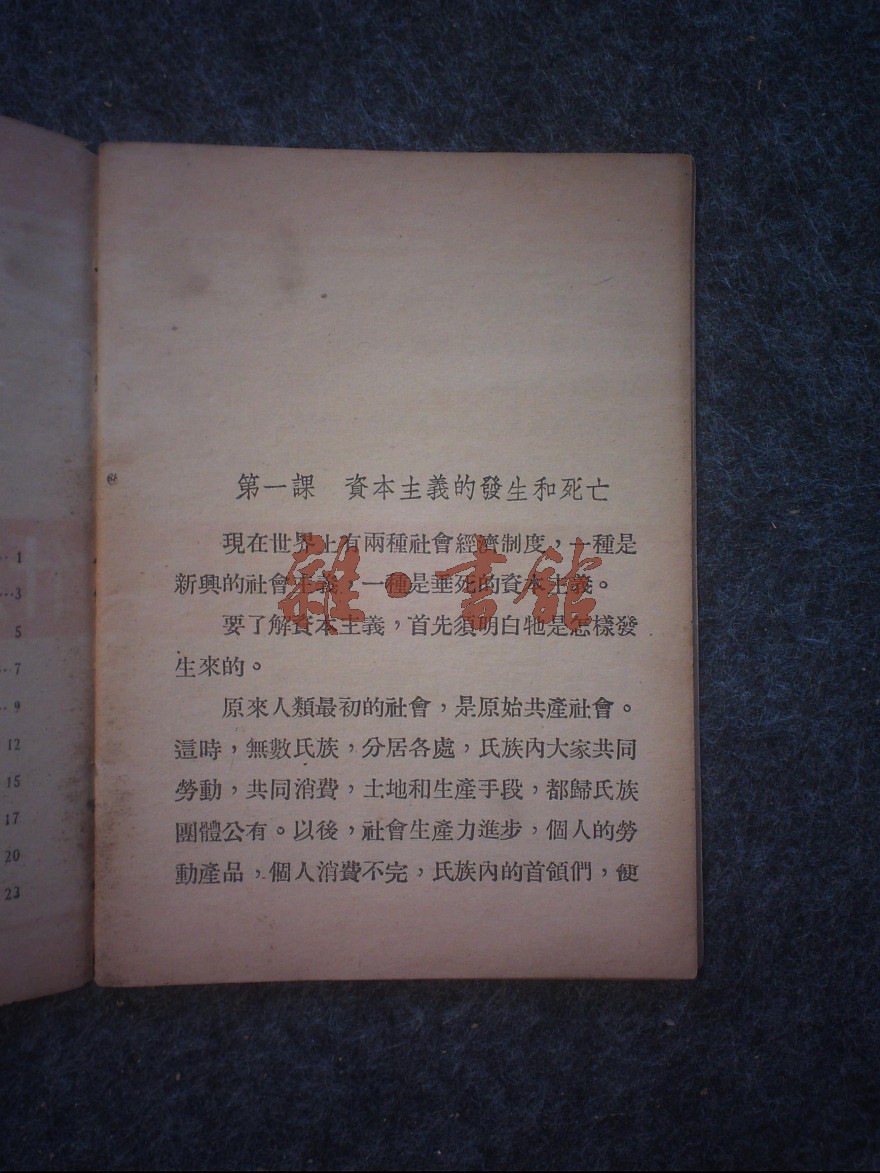 第一課 資本主義的發生和死亡
現在世界上有兩種社會經濟制度，一種是
新興的社會主義，一種是垂死的資本主義。
要了解資本主義，首先須明白牠是怎樣發
生來的。
原來人類最初的社會，是原始共產社會。
這時，無數氏族，分居各處，氏族內大家共同
勞動，共同消費，土地和生產手段，都歸氏族
團體公有。以後，社會生產力進步，個人的勞
動產品，個人消費不完，氏族內的首領們，便
雜·書館
1
3
5
7
9
12
15
17
20
23